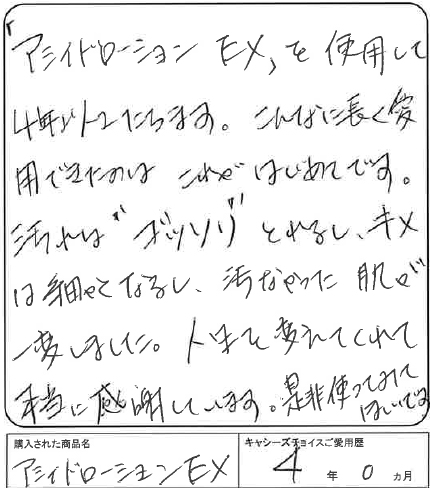 「アシィドローション EX」を使用して
4年以上たちます。こんなに長く愛
用できたのは これが はじめてです。
汚れは"ゴッソリ"とれるし、キメ
は細やかになるし、汚なかった 肌が
一変しました。人生を変えてくれて
本当に感謝しています。是非使ってみて
ほしいです
購入された商品名
キャシーズチョイスご愛用歴
アシィドローションEX
4 年 0 ヵ月